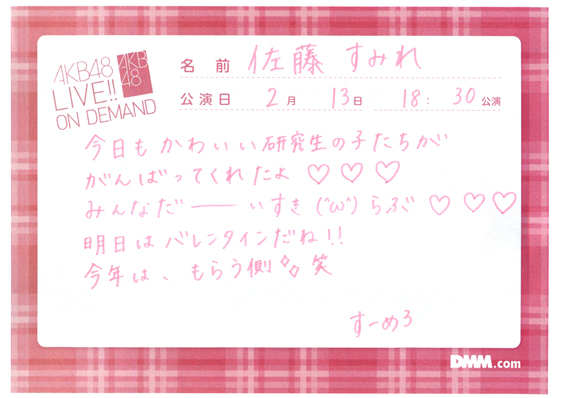 AKB48
LIVE!!
ON DEMAND
AKB
48
名前 佐藤 すみれ
公演日 2月 13日 18:30公演
今日もかわいい研究生の子たちが
がんばってくれたよ♡♡♡
みんなだ――いすき(^ω^)らぶ♡♡♡
明日はバレンタインだね!!
今年は、もらう側✧✧笑
すーめろ
DMM.com